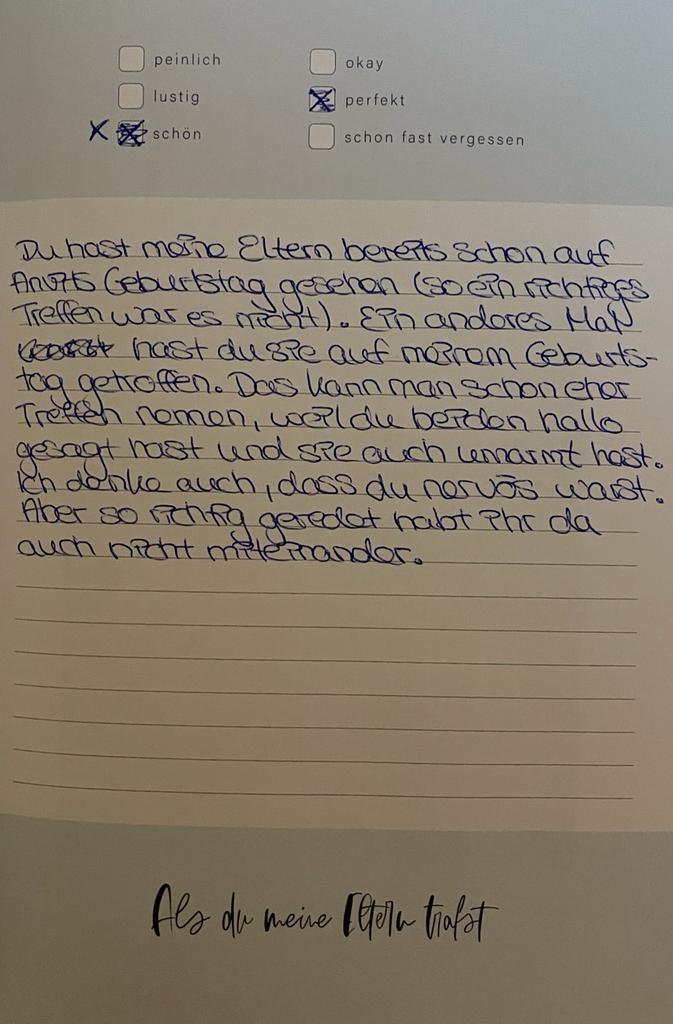 peinlich
okay
lustig
perfekt
schön
schon fast vergessen
Du hast meine Eltern bereits schon auf
Geburtstag gesehen (so ein richtiges
Treffen war es nicht). Ein anderes Mal
hast du sie auf meinem Geburts-
tag getroffen. Das kann man schon eher
Treffen nennen, weil du beiden hallo
gesagt hast und sie auch umarmt hast.
Ich denke auch, dass du nervös warst.
Aber so richtig geredet habt ihr da
auch nicht miteinander.
Als du meine Eltern trafst